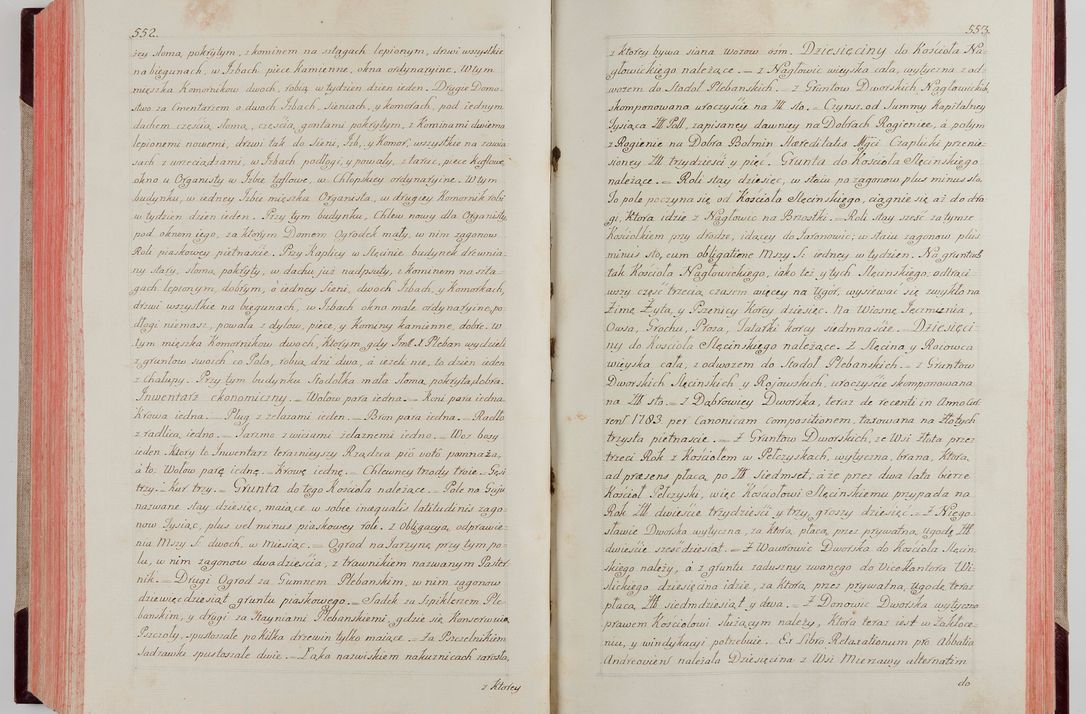 552.
żey słomą pokrytym, z kominem na sztagach lepionym, drzwi wszystkie
na biegunach, w Izbach piece kamienne, okna ordynaryine. W tym
mieszka Komornikow dwoch, robią w tydzien dzien ieden. Drugie Domo-
stwo za Cmentarzem o dwoch Izbach, Sieniach, y komorach, pod iednym
dachem częścią słomą, częścią gontami pokrytym, z Kominami dwiema
lepionemi nowemi, drzwi tak do Sieni, Izb, y Komor, wszystkie na zawia-
sach z wrzeciądzami, w Izbach podłogi, y powały, z tarcic, piece Kaflowe,
okno u Organisty w Izbie taflowe, w Chłopskiey ordynaryine. W tym
budynku, w iedney Izbie mieszka Organista, w drugiey Komornik robi
w tydzien dzien ieden. Przy tym budynku, Chlew nowy dla Organisty,
pod oknem iego, za ktorym Domem Ogrodek mały, w nim zagonow
Roli piaskowey piętnaście. Przy Kaplicy w Slęcinie budynek drewnia-
ny stary, słomą pokryty, w dachu już nadpsuty, z kominem na szta-
gach lepionym, dobrym, o iedney Sieni, dwoch Izbach, y Komorkach,
drzwi wszystkie na biegunach, w Izbach okna małe ordynaryine, po-
dłogi niemasz, powała z dylow, piece, y Kominy kamienne, dobre. W
tym mieszka Komornikow dwoch, Ktorym gdy Jmć X Pleban wydzieli
z gruntow swoich co Pola, robią dni dwa, a ieżeli nie, to dzien ieden
z Chałupy. Przy tym budynku Stodołka mała słomą pokryta, dobra.
Inwentarz ekonomiczny. Wołow para iedna. Koni para iedna.
Krowa iedna. Pług z żelazami ieden. Bron para iedna. Radło
z radlicą iedno. Jarzmo z wiciami żelaznemi iedno. Woz bosy
ieden. Ktory to Inwentarz teraznieyszy Rządzca piô votô pomnaża,
á to: Wołow parę iednę. Krowę iednę. Chlewney trzody troie. Gęsi
trzy. Kur trzy. Grunta do tego Kościoła należące. Pole na Gaju
nazwane stay dziesięć, maiące w sobie inæqualis latitudinis zago-
now Tysiąc, plus vel minus piaskowey roli. z Obligacyą odprawie-
nia Mszy S: dwoch, w Miesiąc. Ogrod na Jarzynę, przy tym po-
lu, w nim zagonow dwadzieścia, z trawnikiem nazwanym Paster-
nik. Drugi Ogrod za Gumnem Plebanskim, w nim zagonow
dziewięćdziesiąt gruntu piaskowego. Sadek za Sipiklerzem Ple-
banskim, y drugi za Stayniami Plebanskiemi, gdzie się Konserwuią
Pszczoły, spustoszałe po kilka drzewin tylko maiące. Za Pszczelnikiem
Sadzawki spustoszałe dwie. Łąka nazwiskiem na kuznicach zarosła,
z Ktorey
553.
z ktorey bywa siana wozow ośm. Dziesięciny do Kościoła Na-
głowickiego należące. z Nagłowic wieyska cała, wytyczna z od-
wozem do Stodoł Plebanskich. z Gruntow Dworskich, Nagłowickich,
skomponowana uroczyście na Zł sto. Czynsz, od Summy Kapitalney
Tysiąca Zł Poll, zapisaney dawniey na Dobrach Rogieniec, á potym
z Rogienic na Dobra Bolmin Hæreditatis Mści Czaplicki przenie-
sioney Zł trzydzieści y pięć. Grunta do Kościoła Slęcinskiego
należące. Roli stay dziesięć, w staiu po zagonow plus minus sto.
To pole poczyna się od Kościoła Slęcinskiego, ciągnie się aż do dro-
gi, Ktora idzie z Nagłowic na Brzostki. Roli stay sześć za tymże
Kościołkiem przy drodze, idącey do Jaronowic; w staiu zagonow plus
minus sto, cum obligatione Mszy S: iedney w tydzien. Na gruntach
tak Kościoła Nagłowickiego, iako też y tych Slęcinskiego, odtrąci-
wszy część trzecią, czasem więcey na Ugor, wysiewać się zwykło na
Zimę Żyta, y Pszenicy Korcy dziesięć. Na Wiosnę Jęczmienia,
Owsa, Grochu, Prosa, Tatarki korcy siedmnaście. Dziesięci-
ny do Kościoła Slęcinskiego należące. Z Slęcina y Rocowca
wieyska cała, z odwozem do Stodoł Plebanskich. z Gruntow
Dworskich Slęcinskich y Rojowskich, uroczyście skomponowana
na Zł sto. z Dąbrowiey Dworska, teraz de recenti in Anno Cur-
rent 1783 per Canonicam compositionem, taxowana na Złotych
trzysta piętnaście. Z Gruntow Dworskich, ze Wsi Złota przez
trzeci Rok z Kościołem w Pełczyskach, wytyczna, brana, Ktorą
ad præsens płacą, po Zł Siedmset, á że przez dwa lata bierze
Kościoł Pełczyski, więc Kościołowi Slęcinskiemu przypada na
Rok Zł dwieście trzydzieści y trzy, groszy dziesięć. Z Niego-
sławic Dworska wytyczna, za Ktorą płacą, przez prywatną Ugodę Zł
dwieście sześćdziesiąt. Z Wawrowic Dworska do Kościoła Slęcin-
skiego należy, á z gruntu zaduszny zwanego do Vicekantora Wi-
slickiego dziesięcina idzie, za Ktorą, przez prywatną Ugodę teraz
płacą Zł siedmdziesiąt y dwa. Z Donowic Dworska wytyczna
prawem Kościołowi służącym należy, Ktora teraz iest w Zakłoce-
niu, y windykacyi potrzebuie. Ex Libro Retaxationum pro Abbatia
Andreovien: należała Dziesięcina z Wsi Mierzawy alternatim
do